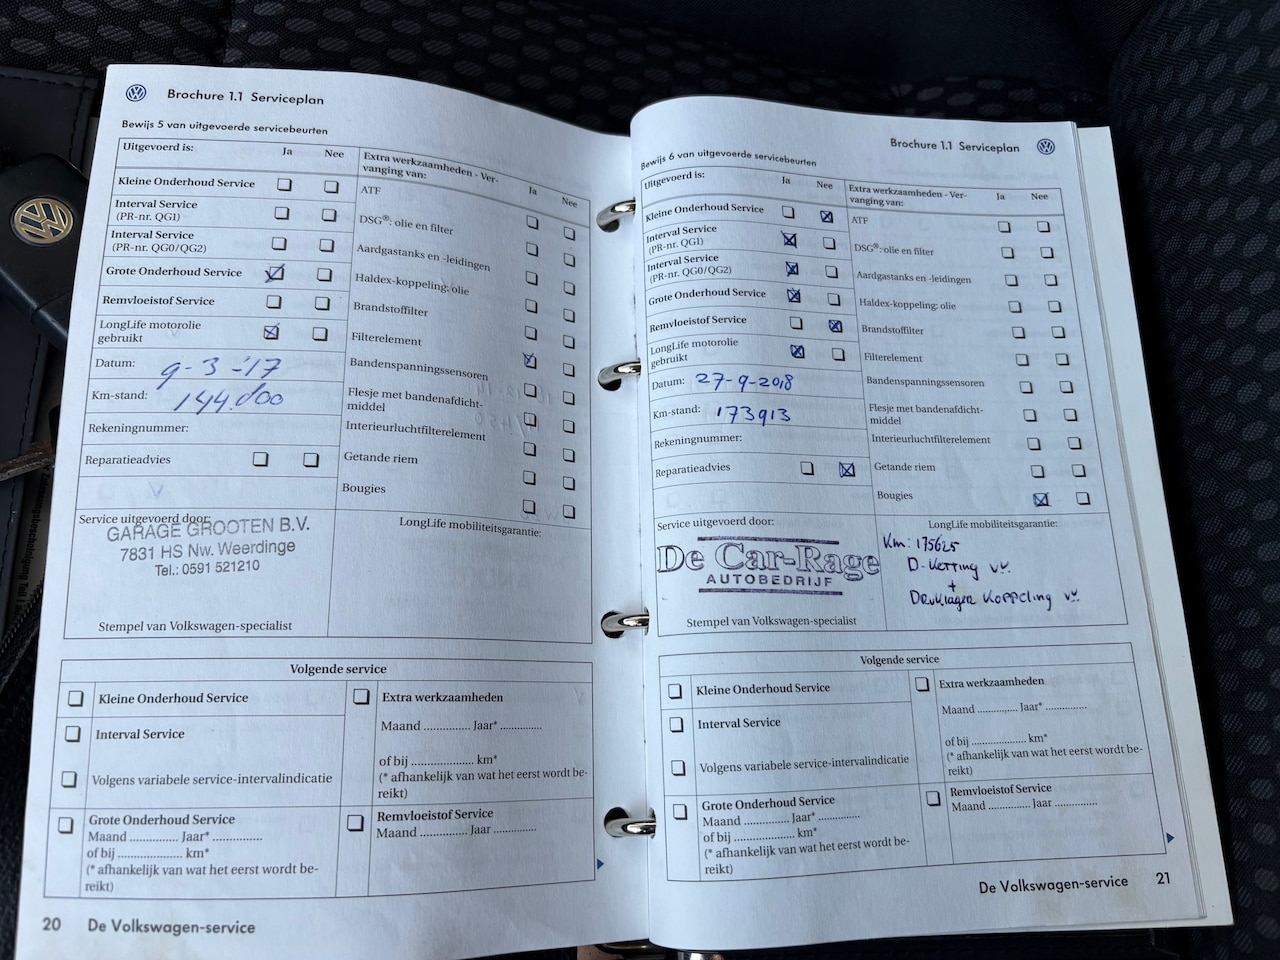 Brochure 1.1 Serviceplan
Bewijs 5 van uitgevoerde servicebeurten
Uitgevoerd is: Ja Nee
Kleine Onderhoud Service
Interval Service
(PR-nr. QG1)
Interval Service
(PR-nr. QG0/QG2)
Grote Onderhoud Service
Remvloeistof Service
LongLife motorolie
gebruikt
Datum: 9-3-'17
Km-stand: 144.000
Rekeningnummer:
Reparatieadvies
Extra werkzaamheden - Ver-
vanging van: Ja Nee
ATF
DSG®: olie en filter
Aardgastanks en -leidingen
Haldex-koppeling: olie
Brandstoffilter
Filterelement
Bandenspanningssensoren
Flesje met bandenafdicht-
middel
Interieurluchtfilterelement
Getande riem
Bougies
Service uitgevoerd door:
GARAGE GROOTEN B.V.
7831 HS Nw. Weerdinge
Tel.: 0591 521210
Stempel van Volkswagen-specialist
LongLife mobiliteitsgarantie:
Volgende service
Kleine Onderhoud Service
Interval Service
Volgens variabele service-intervalindicatie
Grote Onderhoud Service
Maand .............. Jaar* ..............
of bij .................... km*
(* afhankelijk van wat het eerst wordt be-
reikt)
Extra werkzaamheden
Maand .............. Jaar* ............
of bij .................... km*
(* afhankelijk van wat het eerst wordt be-
reikt)
Remvloeistof Service
Maand ............. Jaar .............
20 De Volkswagen-service
Brochure 1.1 Serviceplan
Bewijs 6 van uitgevoerde servicebeurten
Uitgevoerd is: Ja Nee
Kleine Onderhoud Service
Interval Service
(PR-nr. QG1)
Interval Service
(PR-nr. QG0/QG2)
Grote Onderhoud Service
Remvloeistof Service
LongLife motorolie
gebruikt
Datum: 27-9-2018
Km-stand: 173913
Rekeningnummer:
Reparatieadvies
Extra werkzaamheden - Ver-
vanging van: Ja Nee
ATF
DSG®: olie en filter
Aardgastanks en -leidingen
Haldex-koppeling: olie
Brandstoffilter
Filterelement
Bandenspanningssensoren
Flesje met bandenafdicht-
middel
Interieurluchtfilterelement
Getande riem
Bougies
Service uitgevoerd door:
De Car-Rage
AUTOBEDRIJF
Stempel van Volkswagen-specialist
LongLife mobiliteitsgarantie:
Km: 175625
D-Ketting vv.
+
Druklager Koppeling vv.
Volgende service
Kleine Onderhoud Service
Interval Service
Volgens variabele service-intervalindicatie
Grote Onderhoud Service
Maand .............. Jaar* ..............
of bij .................... km*
(* afhankelijk van wat het eerst wordt be-
reikt)
Extra werkzaamheden
Maand ............. Jaar* ............
of bij .................. km*
(* afhankelijk van wat het eerst wordt be-
reikt)
Remvloeistof Service
Maand ............. Jaar .............
De Volkswagen-service 21